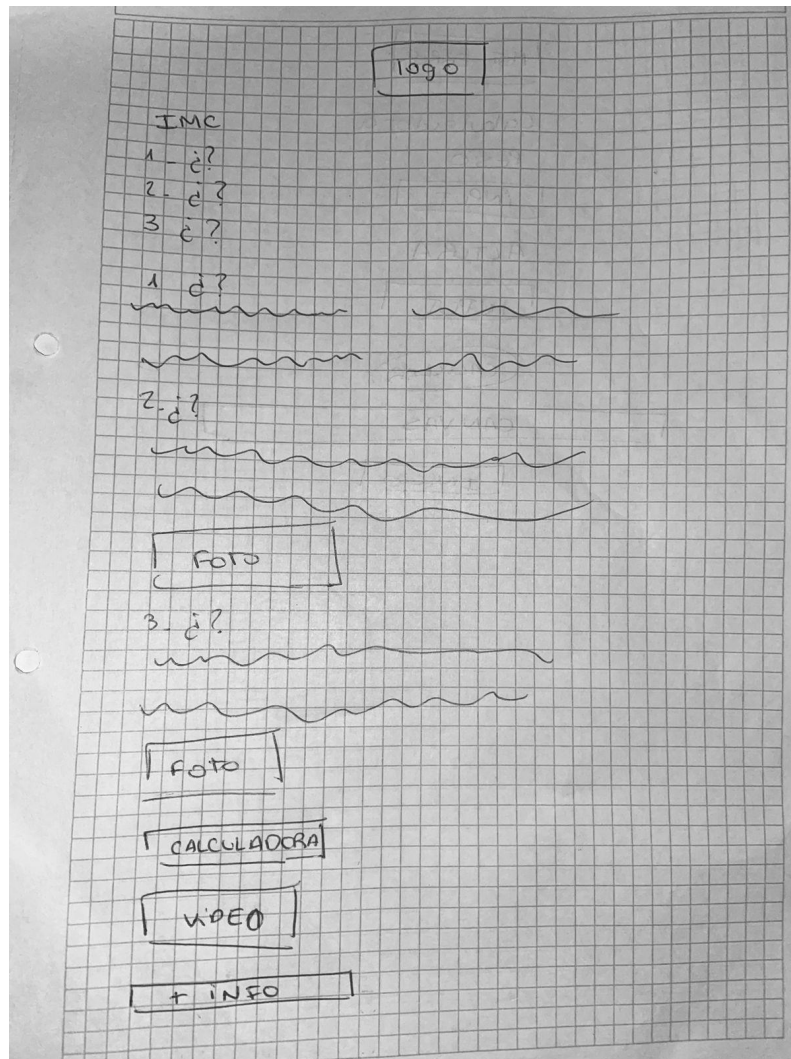 logo
IMC
1- ¿?
2- ¿?
3 ¿?
1 ¿?
2- ¿?
FOTO
3- ¿?
FOTO
CALCULADORA
VIDEO
+ INFO